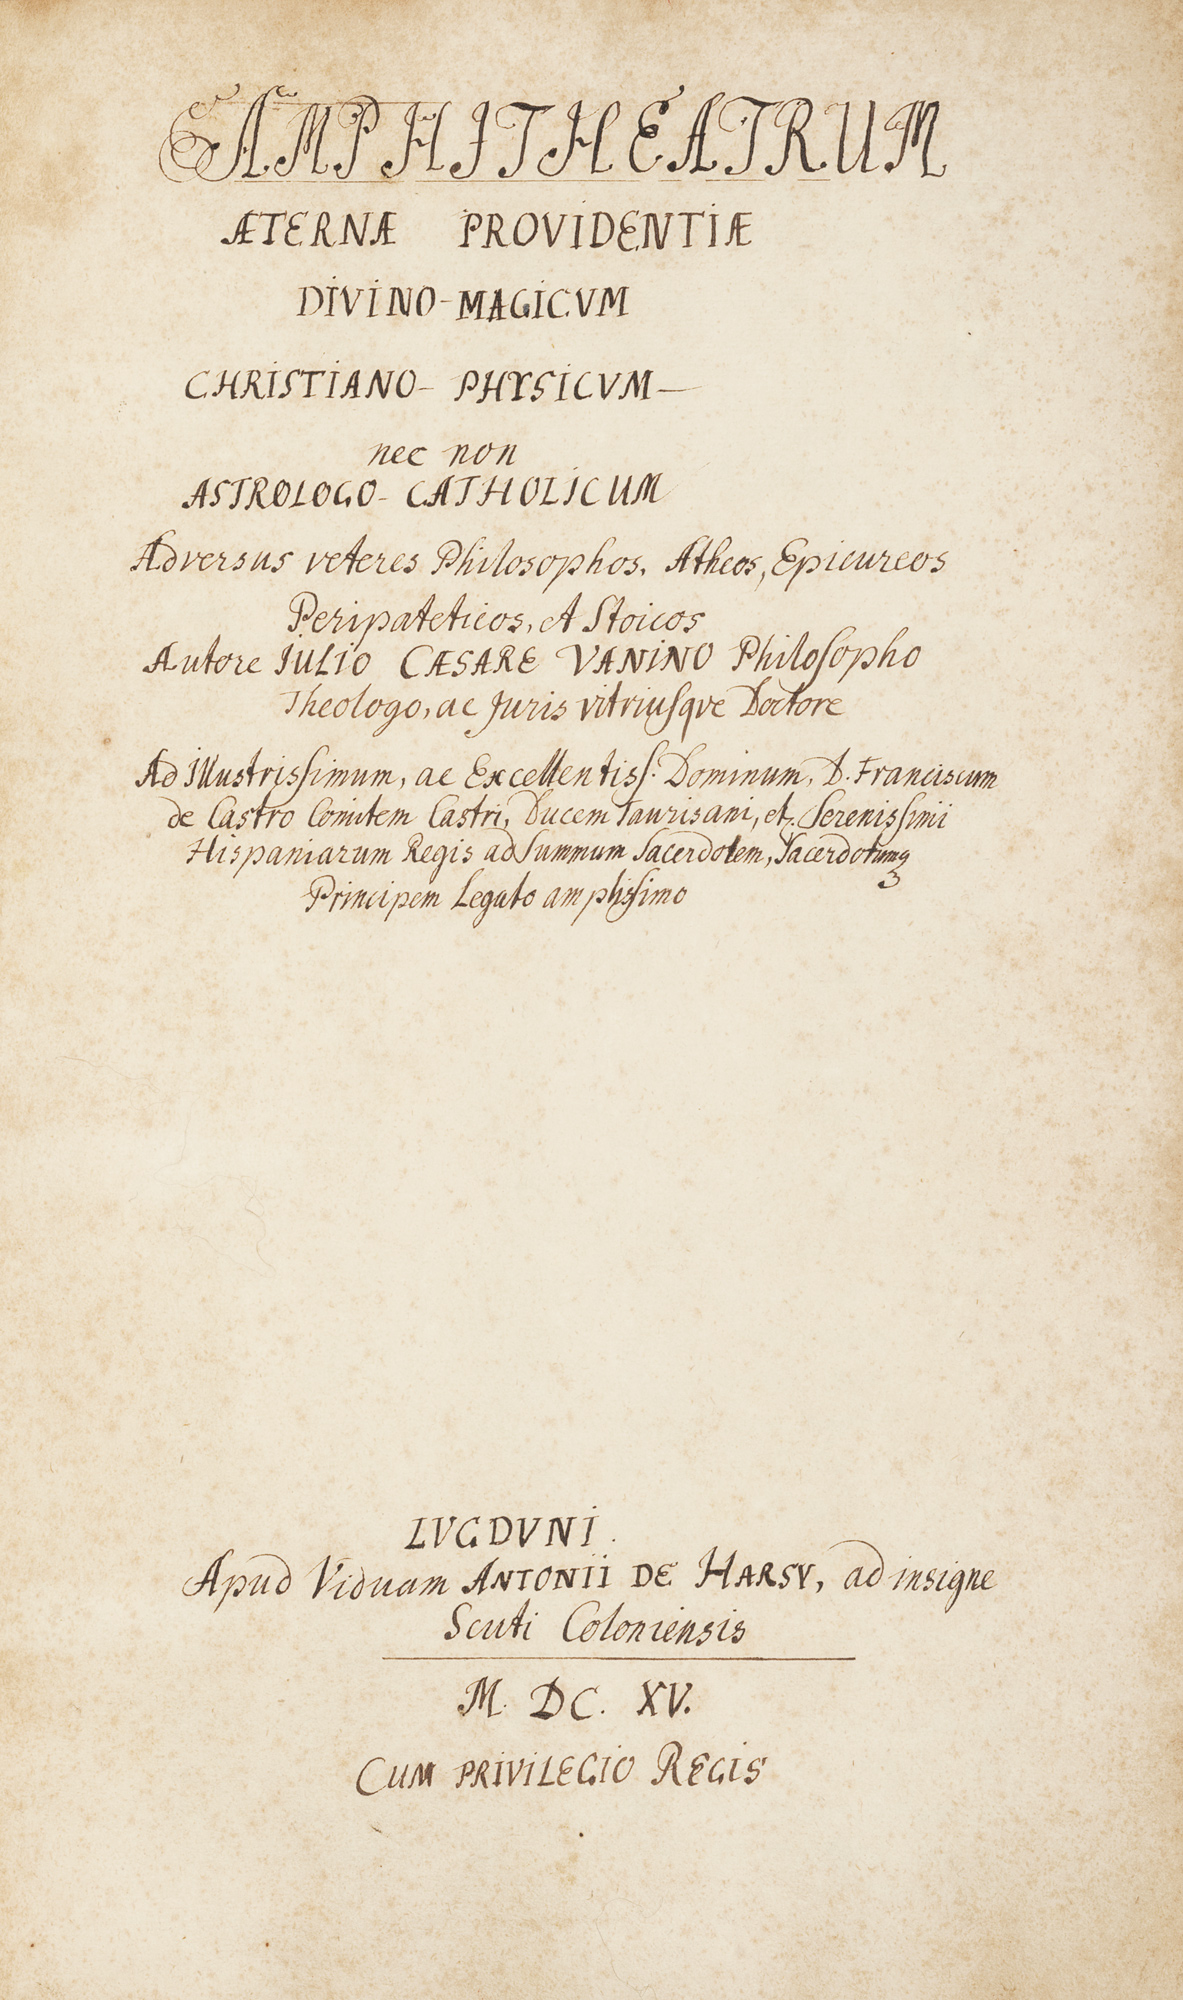 AMPHITHEATRUM
ÆTERNÆ PROVIDENTIÆ
DIVINO-MAGICVM
CHRISTIANO- PHYSICVM—
nec non
ASTROLOGO- CATHOLICUM
Adversus veteres Philosophos, Atheos, Epicureos
Peripateticos, et Stoicos
Autore IULIO CÆSARE VANINO Philoſopho
Theologo, ac Juris vtriuſqve Doctore
Ad Illustrisſimum, ac Excellentisſ. Dominum, D. Franciscum
de Castro Comitem Castri, Ducem Taurisani, et Serenisſimi
Hispaniarum Regis ad Summum Sacerdotem, Sacerdotumq
Principem Legato amplisſimo
LVGDVNI.
Apud Viduam ANTONII DE HARSY, ad insigne
Scuti Coloniensis
M. DC. XV.
CUM PRIVILEGIO REGIS